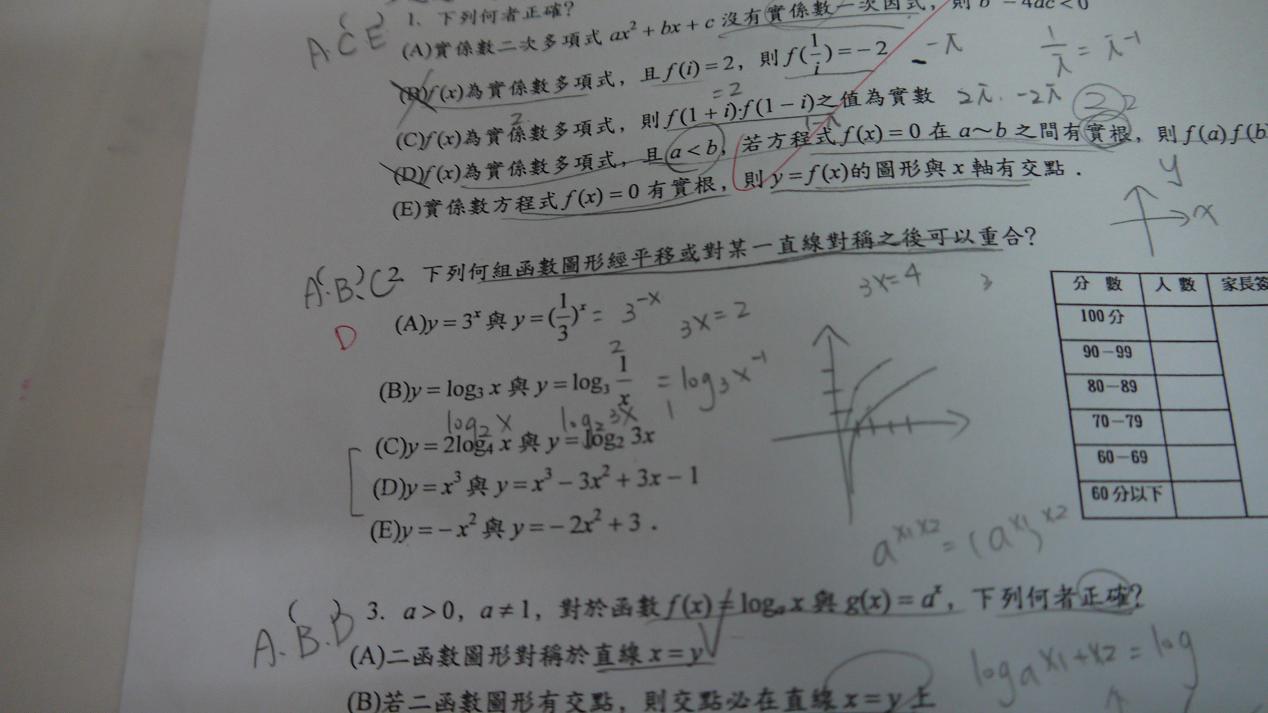 1. 下列何者正確?
(A)實係數二次多項式 ax² + bx + c 沒有實係數一次因式, 則 b² - 4ac < 0
A.C E
(B)f(x)為實係數多項式, 且 f(i) = 2, 則 f(1/i) = -2
= 2
(C)f(x)為實係數多項式, 則 f(1+i)·f(1-i)之值為實數
(D)f(x)為實係數多項式, 且 a < b, 若方程式 f(x) = 0 在 a~b 之間有實根, 則 f(a)f(b
(E)實係數方程式 f(x) = 0 有實根, 則 y = f(x)的圖形與 x 軸有交點.
y
x
A.B.C
D
2. 下列何組函數圖形經平移或對某一直線對稱之後可以重合?
3x = 4
(A)y = 3ˣ 與 y = (1/3)ˣ = 3⁻ˣ
3x = 2
(B)y = log₃ x 與 y = log₃ 1/x = log₃ x⁻¹
log₂ x log₂ 3x
(C)y = 2log₄ x 與 y = log₂ 3x
(D)y = x³ 與 y = x³ - 3x² + 3x - 1
(E)y = -x² 與 y = -2x² + 3.
分 數 人 數 家長簽
100 分
90-99
80-89
70-79
60-69
60 分以下
A.B.D
3. a > 0, a ≠ 1, 對於函數 f(x) = logₐ x 與 g(x) = aˣ, 下列何者正確?
(A)二函數圖形對稱於直線 x = y
log aˣ¹⁺ˣ² = log
(B)若二函數圖形有交點, 則交點必在直線 x = y 上